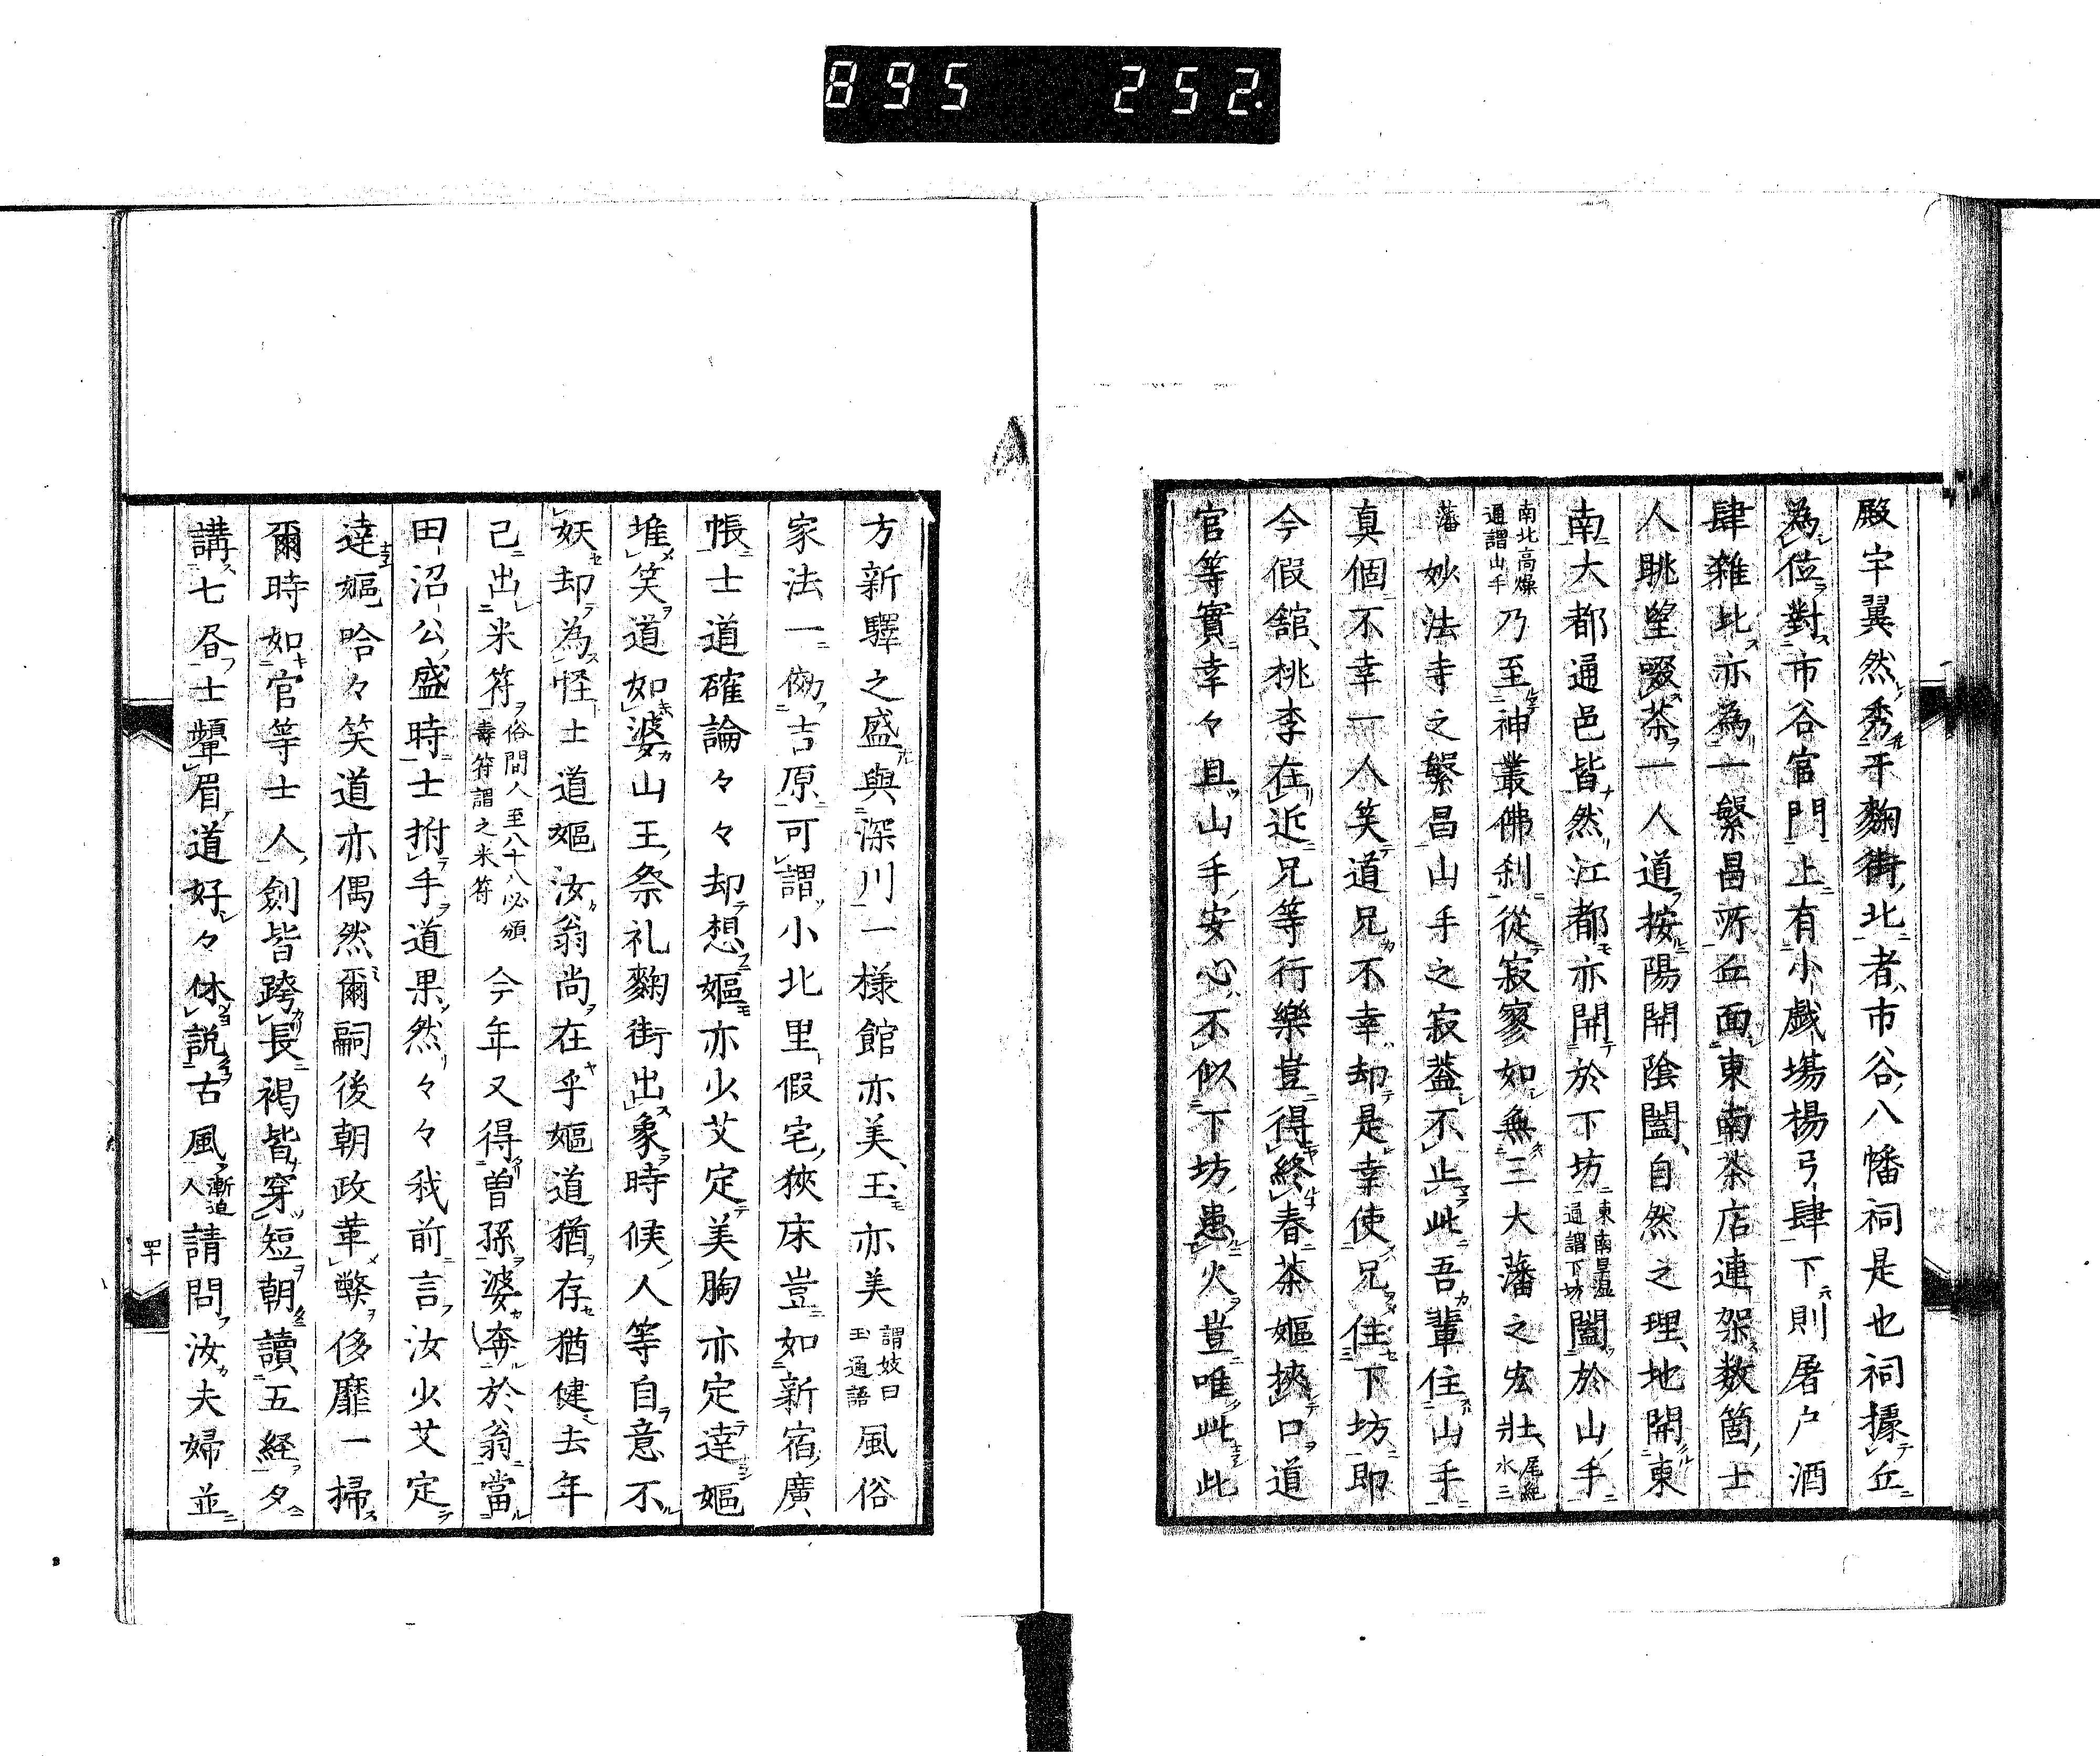 895 252.
殿宇翼然秀于麴街北者市谷八幡祠是也祠據丘
為位對市谷官門上有小戯場楊弓肆下則屠户酒
肆雜比亦為一繁昌所丘面東南茶店連架数箇士
人眺望啜茶一人道按陽開陰闔自然之理地開東
南大都通邑皆然江都亦開於下坊東南卑湿通謂下坊闔於山手
南北高燥通謂山手乃至神叢佛刹從寂寥如無三大藩之宏壮尾紀水三
藩妙法寺之繁昌山手之寂蓋不止此吾輩住山手
真個不幸一人笑道兄不幸却是幸使兄住下坊即
今假舘桃李在近兄等行樂豈得終春茶嫗挾口道
官等實幸々且山手安心不似下坊患火豈唯此此
方新驛之盛與深川一様館亦美玉亦美謂妓曰玉通語風俗
家法一倣吉原可謂小北里假宅狹床豈如新宿廣
帳士道確論々々却想嫗亦少艾定美胸亦定達嫗
堆笑道如婆山王祭礼麴街出象時候人等自意不
妖却為怪士道嫗汝翁尚在乎嫗道猶存猶健去年
己出米符俗間人至八十八必頒壽符謂之米符今年又得曽孫婆奔於翁當
田沼公盛時士拊手道果然々々我前言汝少艾定
達嫗哈々笑道亦偶然爾嗣後朝政革弊侈靡一掃
爾時如官等士人劍皆跨長褐皆穿短朝讀五経夕
講七昏士顰眉道好々休説古風漸迫人請問汝夫婦並
四十